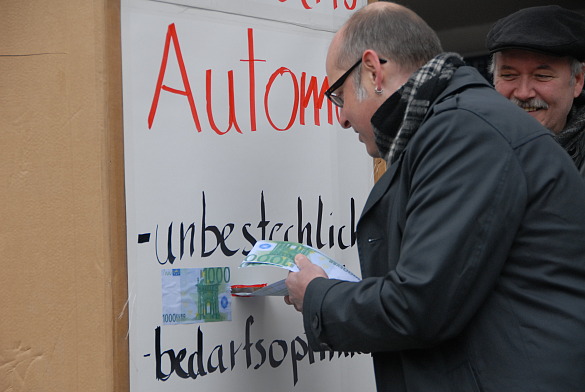 Autom
-unbestechlich
1000
1000
-bedarfsoptimi